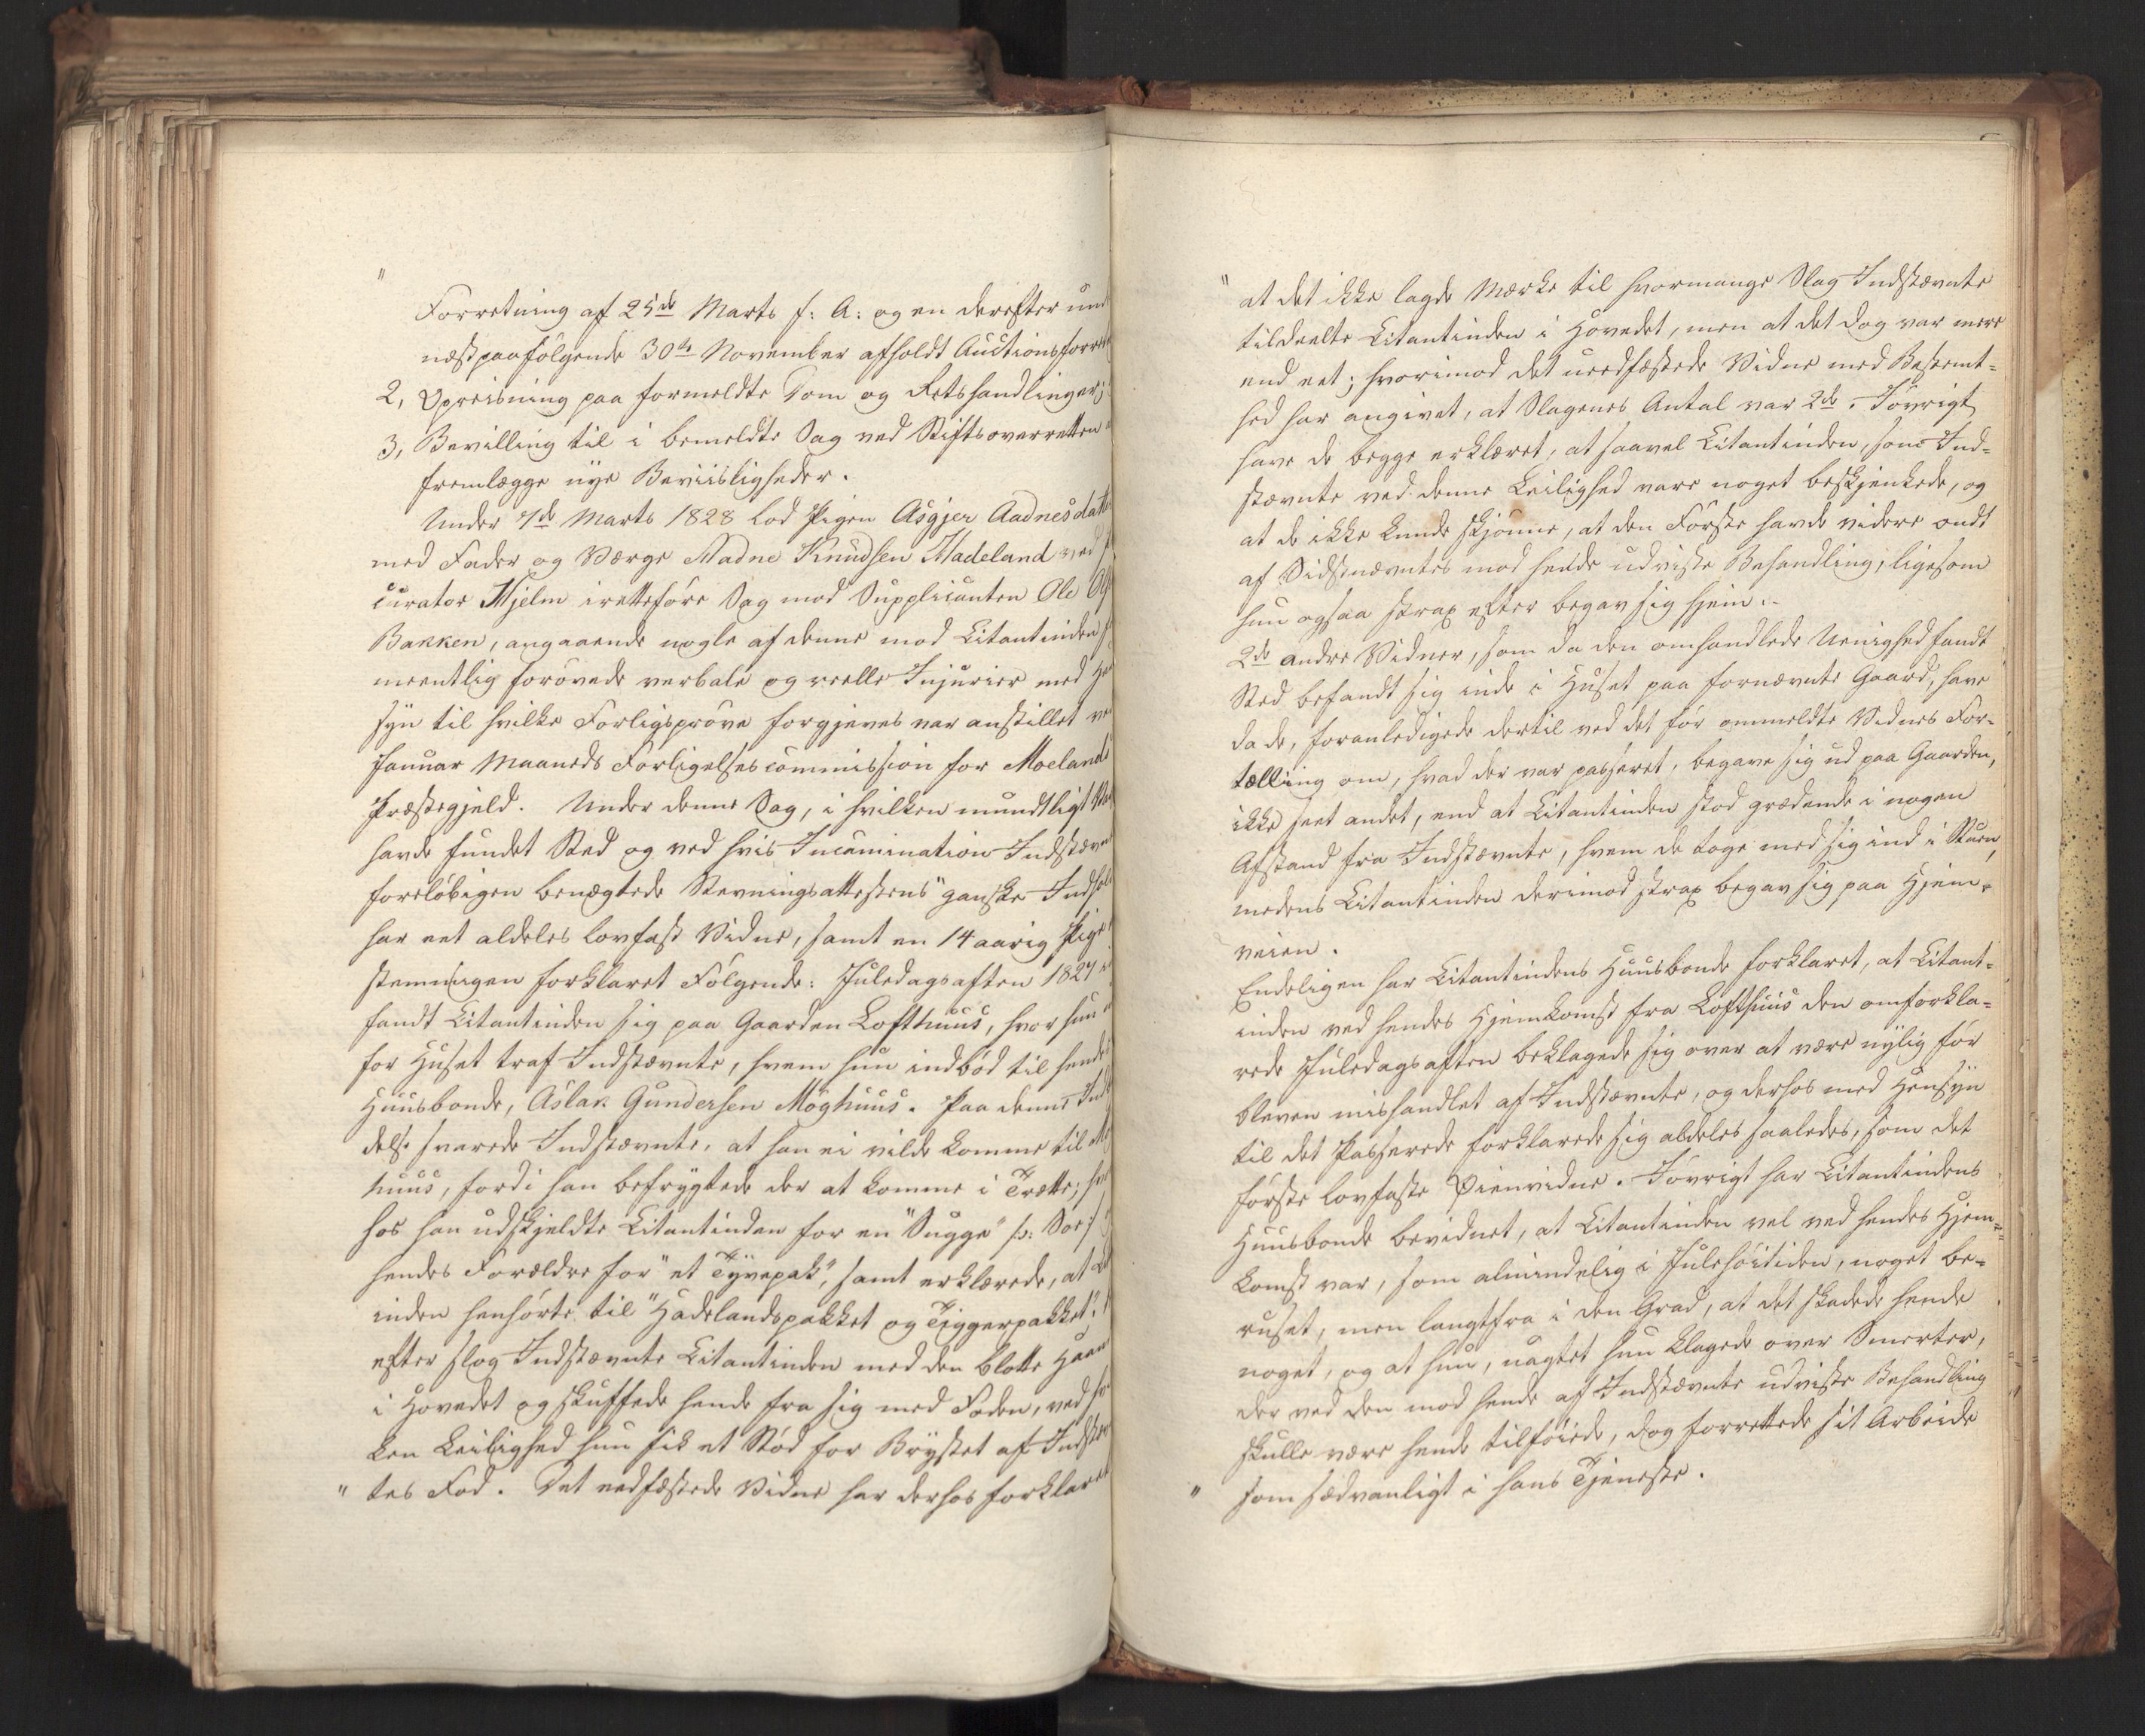 "
Forretning af 25de Marts f: A: og en derefter
næstpaafølgende 30te November afholdt
2, Opreisning paa formeldte Dom og Retshandlinger;
3, Bevilling til i bemeldte Sag ved Stiftsoverretten
fremlægge nye Beviisligheder.
Under 7de Marts 1828 lod Pigen Asgjer
med Fader og Værge Aadne Knudsen Hadeland ved
curator Hjelm iretteføre Sag mod Supplicanten Ole
Bakken, angaaende nogle af denne mod Citantinden
meentlig forøvede verbale og reelle Injurier med
syn til hvilke Forligsprøve forgjeves var anstillet
Januar Maaneds Forligelsescommission for
Præstegjeld. Under denne Sag, i hvilken mundtligt
havde fundet Sted og ved hvis Incamination
foreløbigen benægtede Stevningsattestens "ganske
har eet aldeles lovfast Vidne, samt en 14 aarig
stemmigen forklaret Følgende: Juledagsaften 1827
fandt Citantinden sig paa Gaarden Lofthuus, hvor hun
for Huset traf Indstævnte, hvem hun indbød til
Huusbonde, Aslak Gundersen Møghuus. Paa denne
delse svarede Indstævnte, at han ei vilde komme til
huus, fordi han befrygtede der at komme i Trætte;
hos han udskjeldte Citantinden for en "Sugge"
hendes Forældre for "et Tyvepak", samt erklærede, at
inden henhørte til "Hadelandspakket og Tiggerpakket".
efter slog Indstævnte Citantinden med den blotte
i Hovedet og skuffede hende fra sig med Foden, ved
ken Leilighed hun fik et Stød for Brystet af
" tes Fod. Det eedfæstede Vidne har derhos
" at det ikke lagde Mærke til hvormange Slag Indstævnte
tildeelte Citantinden i Hovedet, men at det dog var mere
end eet; hvorimod det ueedfæstede Vidne med Bestemt=
hed har angivet, at Slagenes Antal var 2de. Iøvrigt
have de begge erklæret, at saavel Citantinden, som Ind=
stævnte ved denne Leilighed vare noget beskjenkede, og
at de ikke kunde skjønne, at den Første havde videre ondt
af Sidstnævntes mod hende udviste Behandling; ligesom
hun ogsaa strax efter begav sig hjem.-
2de andre Vidner, som da den omhandlede Uenighed fandt
Sted befandt sig inde i Huset paa fornævnte Gaard, have
da de, foranledigede dertil ved det før ommeldte Vidnes For=
tælling om, hvad der var passeret, begave sig ud paa Gaarden,
ikke seet andet, end at Citantinden stod grædende i nogen
Afstand fra Indstævnte, hvem de toge med sig ind i Stuen,
medens Citantinden derimod strax begav sig paa Hjem=
veien.
Endeligen har Citantindens Huusbonde forklaret, at Citant=
inden ved hendes Hjemkomst fra Lofthuus den omforkla=
rede Juledagsaften beklagede sig over at være nylig før
bleven mishandlet af Indstævnte, og derhos med Hensyn
til det Passerede forklarede sig aldeles saaledes, som det
første lovfaste Øienvidne. Iøvrigt har Citantindens
Huusbonde bevidnet, at Citantinden vel ved hendes Hjem=
komst var, som almindelig i Julehøitiden, noget be=
ruset, men langtfra i den Grad, at det skadede hende
noget, og at hun, uagtet hun klagede over Smerter,
der ved den mod hende af Indstævnte udviste Behandling
skulle være hende tilføiede, dog forrettede sit Arbeide
" som sædvanligt i hans Tjeneste.